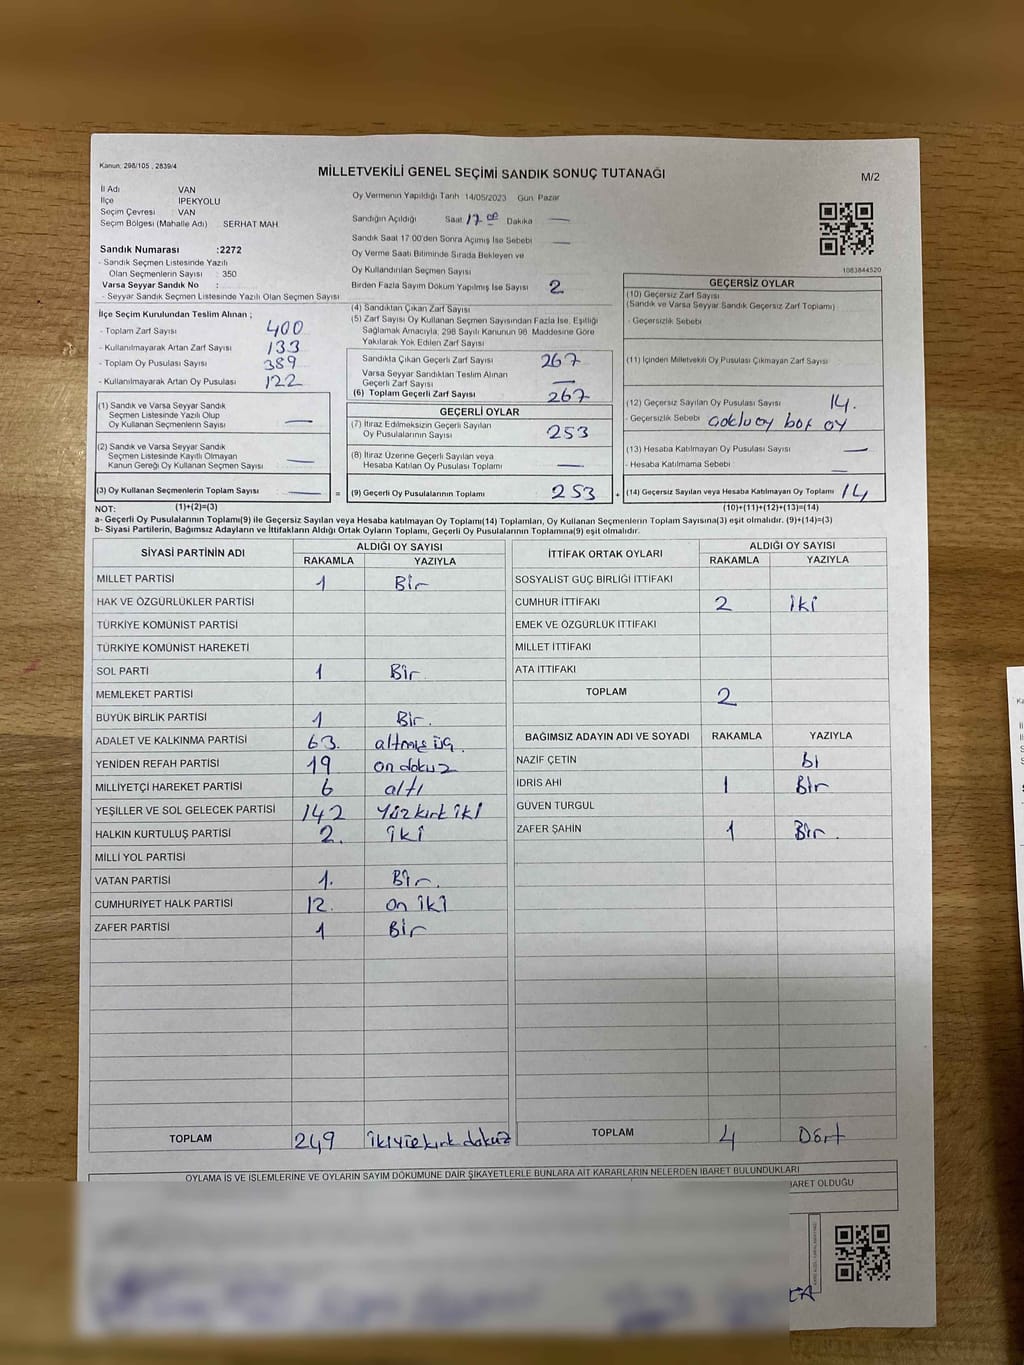 Kanun, 298/105 , 2839/4
MİLLETVEKİLİ GENEL SEÇİMİ SANDIK SONUÇ TUTANAĞI
M/2
İl Adı VAN
İlçe İPEKYOLU
Seçim Çevresi VAN
Seçim Bölgesi (Mahalle Adı) SERHAT MAH.
Sandık Numarası :2272
- Sandık Seçmen Listesinde Yazılı
Olan Seçmenlerin Sayısı : 350
Varsa Seyyar Sandık No :
- Seyyar Sandık Seçmen Listesinde Yazılı Olan Seçmen Sayısı
İlçe Seçim Kurulundan Teslim Alınan ;
- Toplam Zarf Sayısı 400
- Kullanılmayarak Artan Zarf Sayısı 133
- Toplam Oy Pusulası Sayısı 389
- Kullanılmayarak Artan Oy Pusulası 122
(1) Sandık ve Varsa Seyyar Sandık
Seçmen Listesinde Yazılı Olup
Oy Kullanan Seçmenlerin Sayısı —
(2) Sandık ve Varsa Seyyar Sandık
Seçmen Listesinde Kayıtlı Olmayan
Kanun Gereği Oy Kullanan Seçmen Sayısı —
(3) Oy Kullanan Seçmenlerin Toplam Sayısı — =
Oy Vermenin Yapıldığı Tarih 14/05/2023 Gün Pazar
Sandığın Açıldığı Saat 17 00 Dakika —
Sandık Saat 17:00'den Sonra Açılmış İse Sebebi —
Oy Verme Saati Bitiminde Sırada Bekleyen ve
Oy Kullandırılan Seçmen Sayısı
Birden Fazla Sayım Döküm Yapılmış İse Sayısı 2
(4) Sandıktan Çıkan Zarf Sayısı
(5) Zarf Sayısı Oy Kullanan Seçmen Sayısından Fazla İse, Eşitliği
Sağlamak Amacıyla, 298 Sayılı Kanunun 98. Maddesine Göre
Yakılarak Yok Edilen Zarf Sayısı
Sandıkta Çıkan Geçerli Zarf Sayısı 267
Varsa Seyyar Sandıktan Teslim Alınan
Geçerli Zarf Sayısı —
(6) Toplam Geçerli Zarf Sayısı 267
GEÇERLİ OYLAR
(7) İtiraz Edilmeksizin Geçerli Sayılan
Oy Pusulalarının Sayısı 253
(8) İtiraz Üzerine Geçerli Sayılan veya
Hesaba Katılan Oy Pusulası Toplamı —
(9) Geçerli Oy Pusulalarının Toplamı 253 +
1083844520
GEÇERSİZ OYLAR
(10) Geçersiz Zarf Sayısı
(Sandık ve Varsa Seyyar Sandık Geçersiz Zarf Toplamı)
- Geçersizlik Sebebi
(11) İçinden Milletvekili Oy Pusulası Çıkmayan Zarf Sayısı
(12) Geçersiz Sayılan Oy Pusulası Sayısı 14.
- Geçersizlik Sebebi oy
(13) Hesaba Katılmayan Oy Pusulası Sayısı —
- Hesaba Katılmama Sebebi —
(14) Geçersiz Sayılan veya Hesaba Katılmayan Oy Toplamı 14
NOT: (1)+(2)=(3) (10)+(11)+(12)+(13)=(14)
a- Geçerli Oy Pusulalarının Toplamı(9) ile Geçersiz Sayılan veya Hesaba katılmayan Oy Toplamı(14) Toplamları, Oy Kullanan Seçmenlerin Toplam Sayısına(3) eşit olmalıdır. (9)+(14)=(3)
b- Siyasi Partilerin, Bağımsız Adayların ve İttifakların Aldığı Ortak Oyların Toplamı, Geçerli Oy Pusulalarının Toplamına(9) eşit olmalıdır.
SİYASİ PARTİNİN ADI ALDIĞI OY SAYISI
RAKAMLA YAZIYLA
MİLLET PARTİSİ 1 Bir
HAK VE ÖZGÜRLÜKLER PARTİSİ
TÜRKİYE KOMÜNİST PARTİSİ
TÜRKİYE KOMÜNİST HAREKETİ
SOL PARTİ 1 Bir
MEMLEKET PARTİSİ
BÜYÜK BİRLİK PARTİSİ 1 Bir.
ADALET VE KALKINMA PARTİSİ 63. altmış üç.
YENİDEN REFAH PARTİSİ 19 on dokuz
MİLLİYETÇİ HAREKET PARTİSİ 6 altı
YEŞİLLER VE SOL GELECEK PARTİSİ 142 Yüz kırk iki
HALKIN KURTULUŞ PARTİSİ 2. iki
MİLLİ YOL PARTİSİ
VATAN PARTİSİ 1. Bir.
CUMHURİYET HALK PARTİSİ 12. on iki
ZAFER PARTİSİ 1 Bir
TOPLAM 249 dokuz
İTTİFAK ORTAK OYLARI ALDIĞI OY SAYISI
RAKAMLA YAZIYLA
SOSYALİST GÜÇ BİRLİĞİ İTTİFAKI
CUMHUR İTTİFAKI 2 iki
EMEK VE ÖZGÜRLÜK İTTİFAKI
MİLLET İTTİFAKI
ATA İTTİFAKI
TOPLAM 2
BAĞIMSIZ ADAYIN ADI VE SOYADI RAKAMLA YAZIYLA
NAZİF ÇETİN bi
İDRİS AHİ 1 Bir
GÜVEN TURGUL
ZAFER ŞAHİN 1 Bir.
TOPLAM 4 Dört
OYLAMA İŞ VE İŞLEMLERİNE VE OYLARIN SAYIM DÖKÜMÜNE DAİR ŞİKAYETLERLE BUNLARA AİT KARARLARIN NELERDEN İBARET BULUNDUKLARI
İBARET OLDUĞU